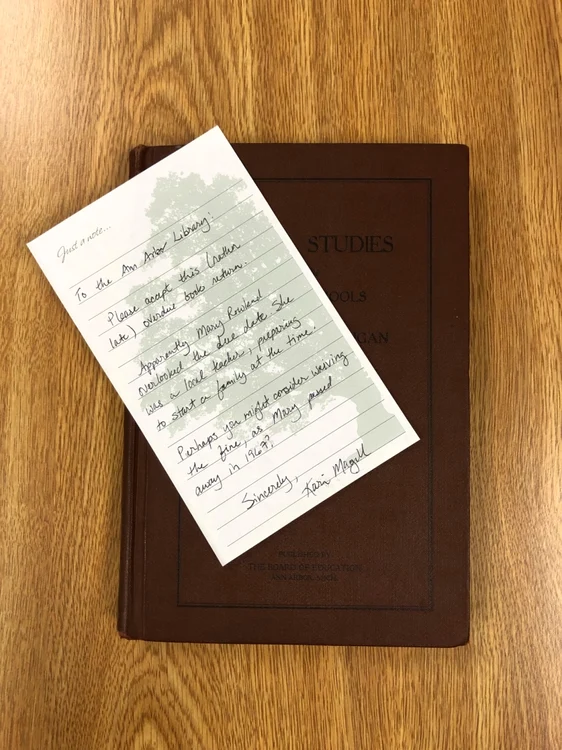 Just a note...
To the Ann Arbor Library:
Please accept this (rather
late) overdue book return.
Apparently Mary Rowland
overlooked the due date. She
was a local teacher, preparing
to start a family at the time.
Perhaps you might consider waiving
the fine, as Mary passed
away in 1967?
Sincerely,
Kari Magill
STUDIES
OOLS
GAN
PUBLISHED BY
THE BOARD OF EDUCATION
ANN ARBOR, MICH.